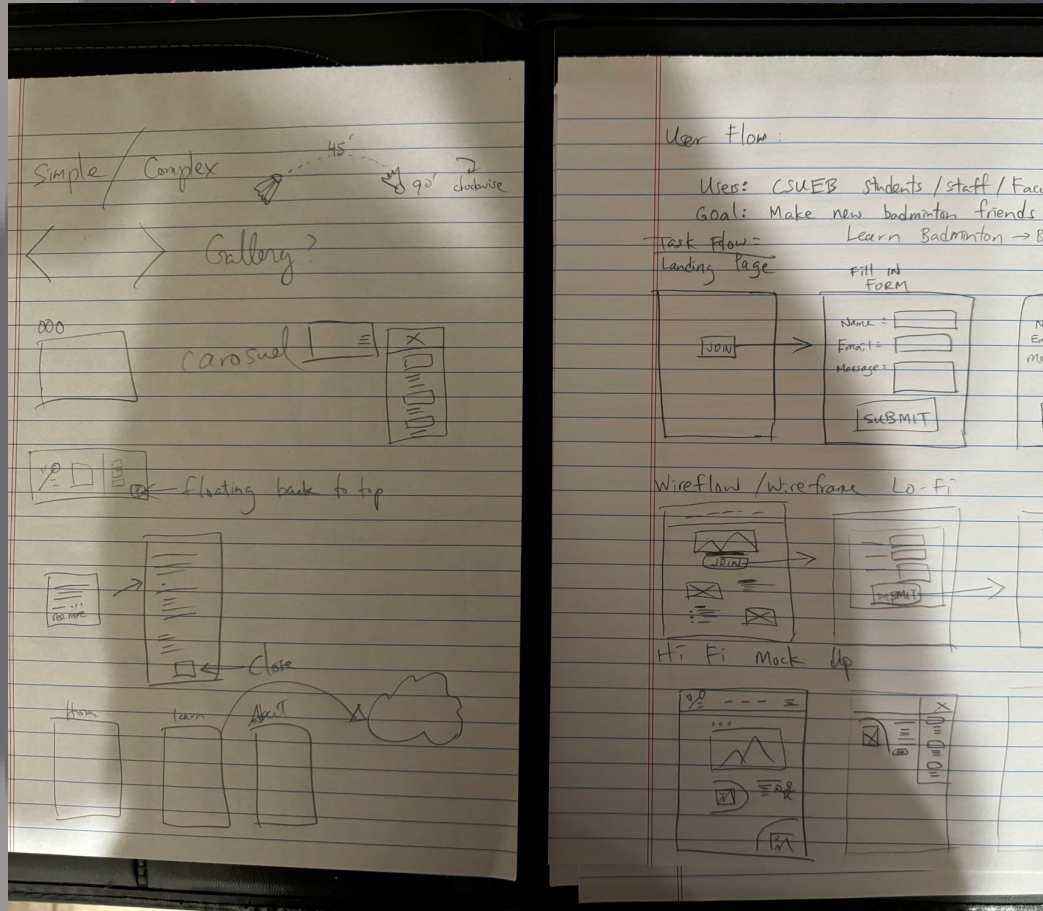 Simple / Complex
45°
90°
clockwise
Gallery?
000
carosuel
X
floating back to top
see more
Close
Home
learn
About
User Flow:
Users: CSUEB students / staff / Facu
Goal: Make new badminton friends
Learn Badminton → B
Task Flow =
Landing Page
Fill IN
FORM
JOIN
Name =
Email =
Message =
SUBMIT
N
Em
Me
Wireflow / Wireframe Lo-Fi
JOIN
SUBMIT
Hi Fi Mock Up
X